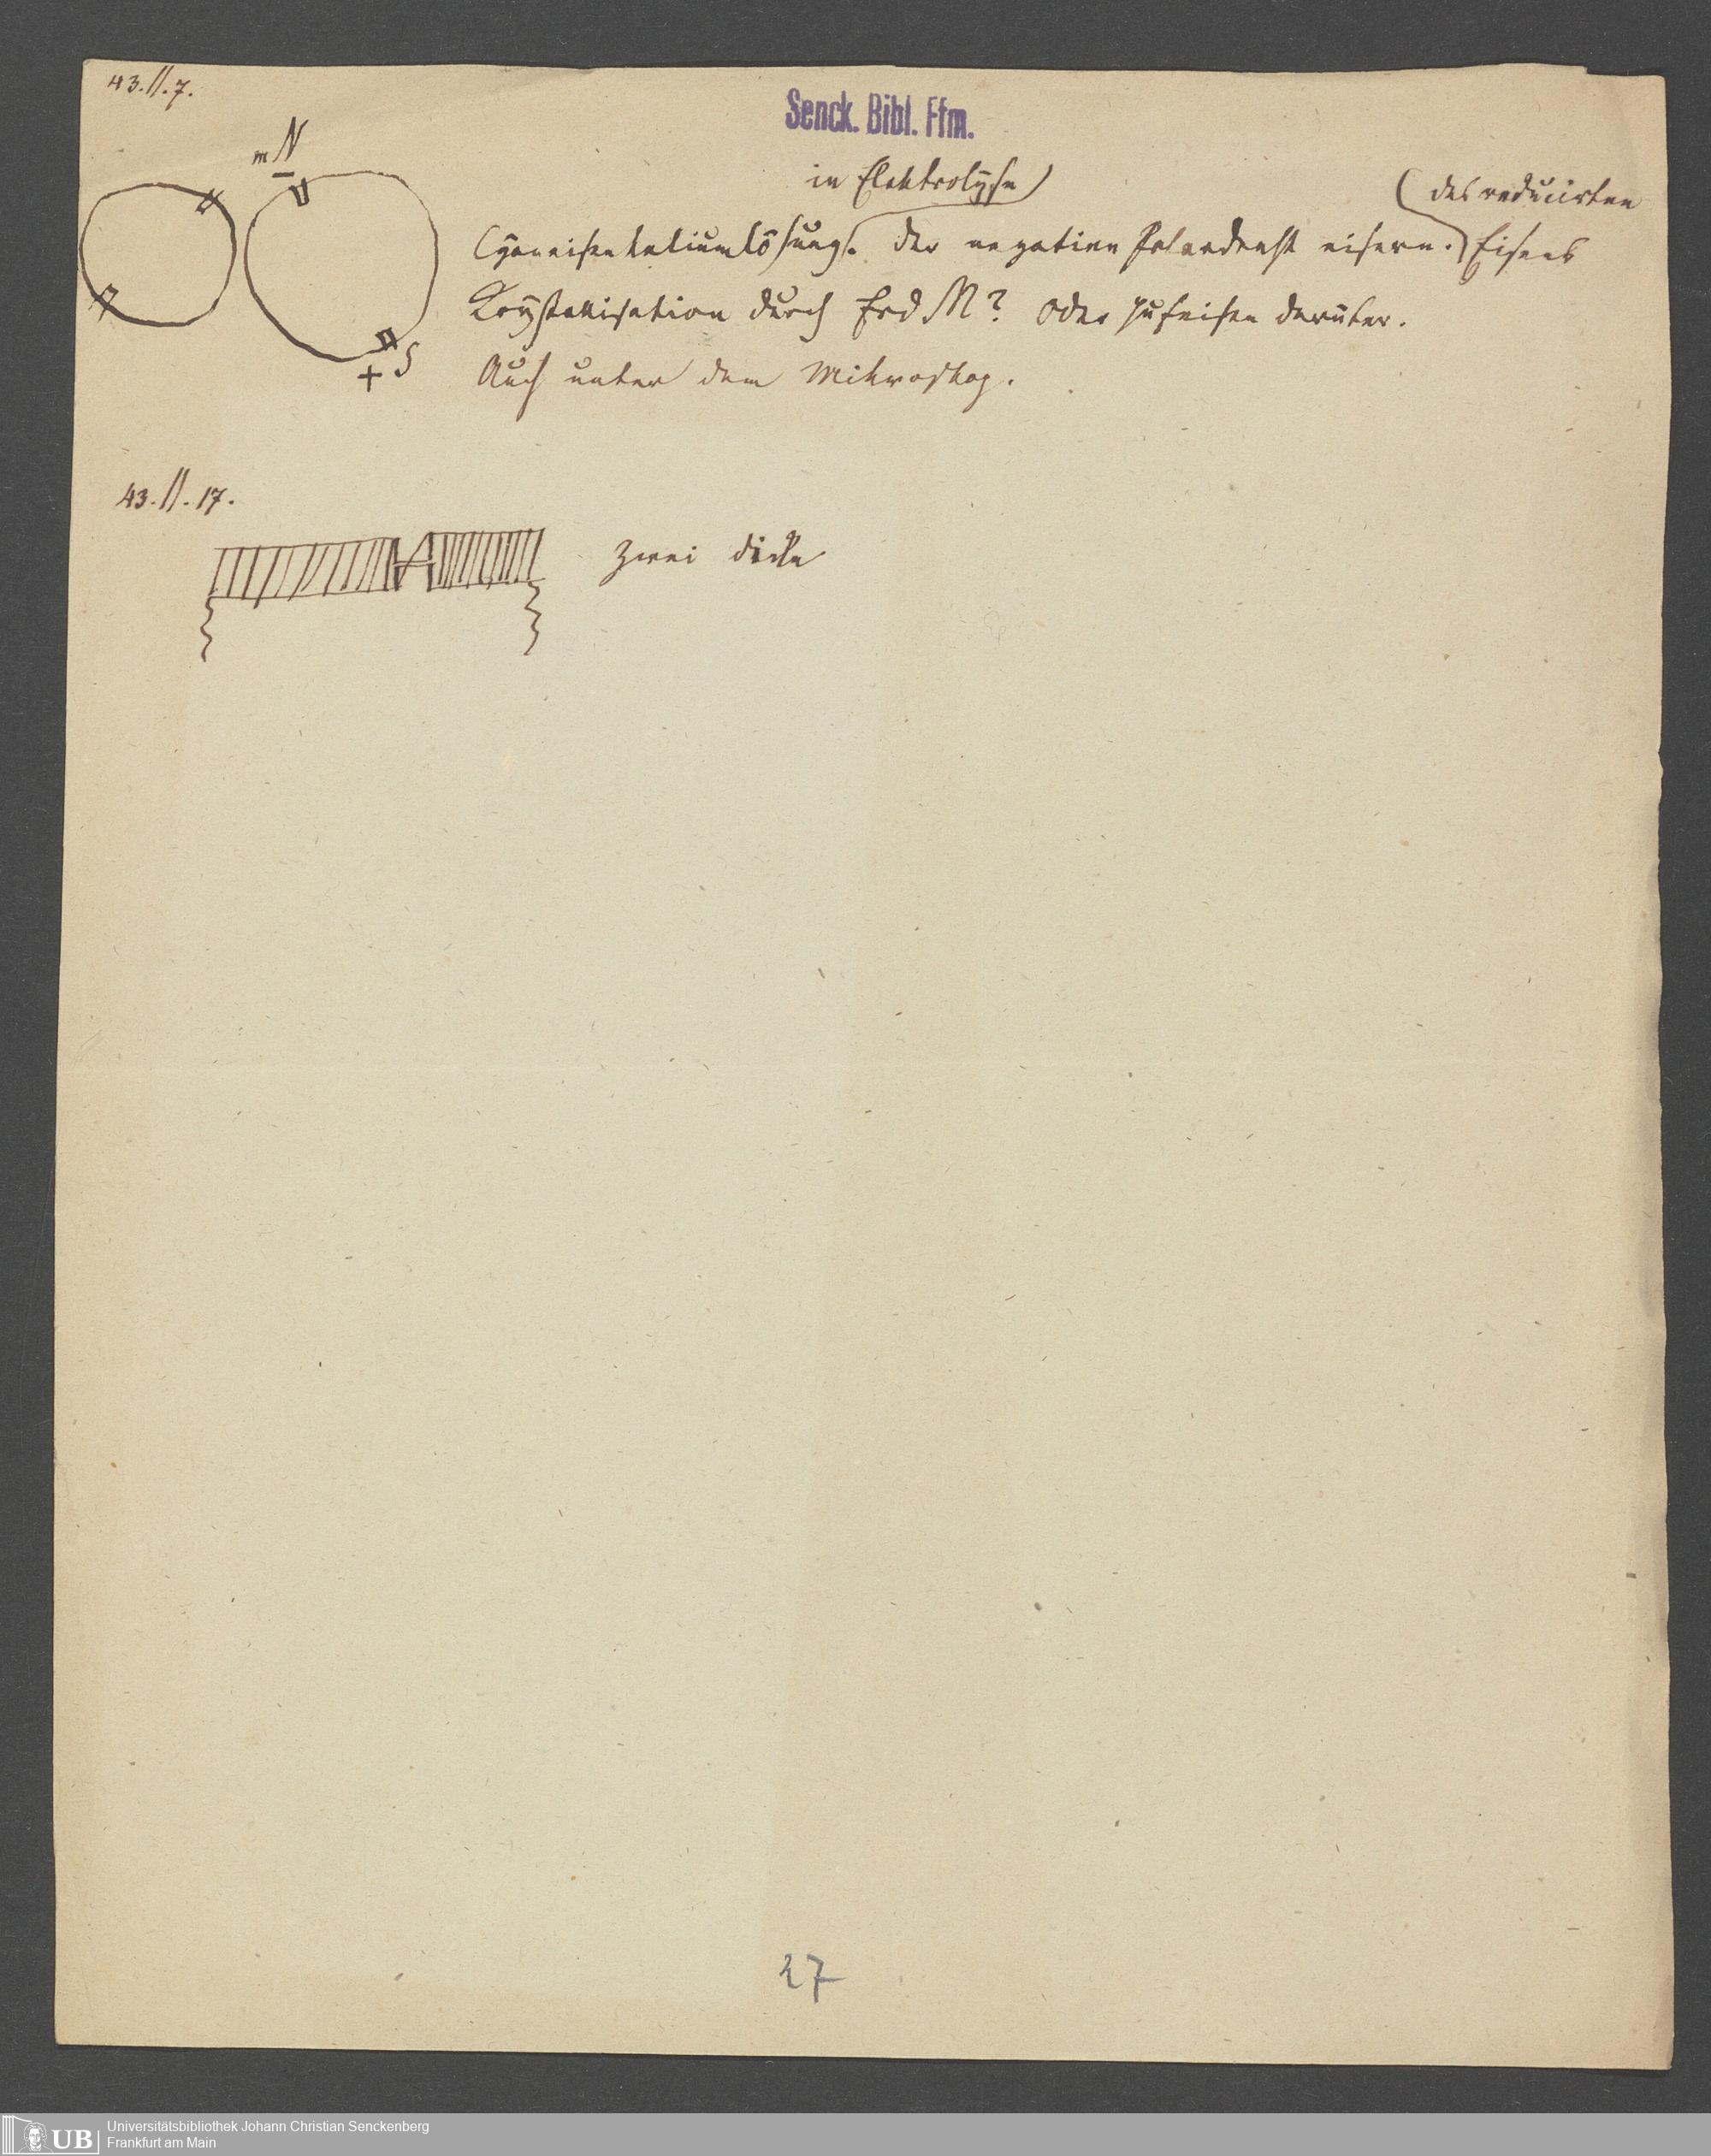 43.II.7.
Senck. Bibl. Ffm.
mN
in Elektrolyse
des reducirten
Cyaneisenkaliumlösung. der negative Polardraht eisern. Eisens
Krystallisation durch Erd M? oder Hufeisen darüber.
+ S
Auch unter dem Mikroskop.
43.II.17.
zwei dicke
27
UB
Universitätsbibliothek Johann Christian Senckenberg
Frankfurt am Main